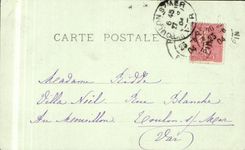 TOULON S MER
CARTE POSTALE
Madame
Villa Noël Rue Blanche
Au Mourillon Toulon s/Mer
(Var)